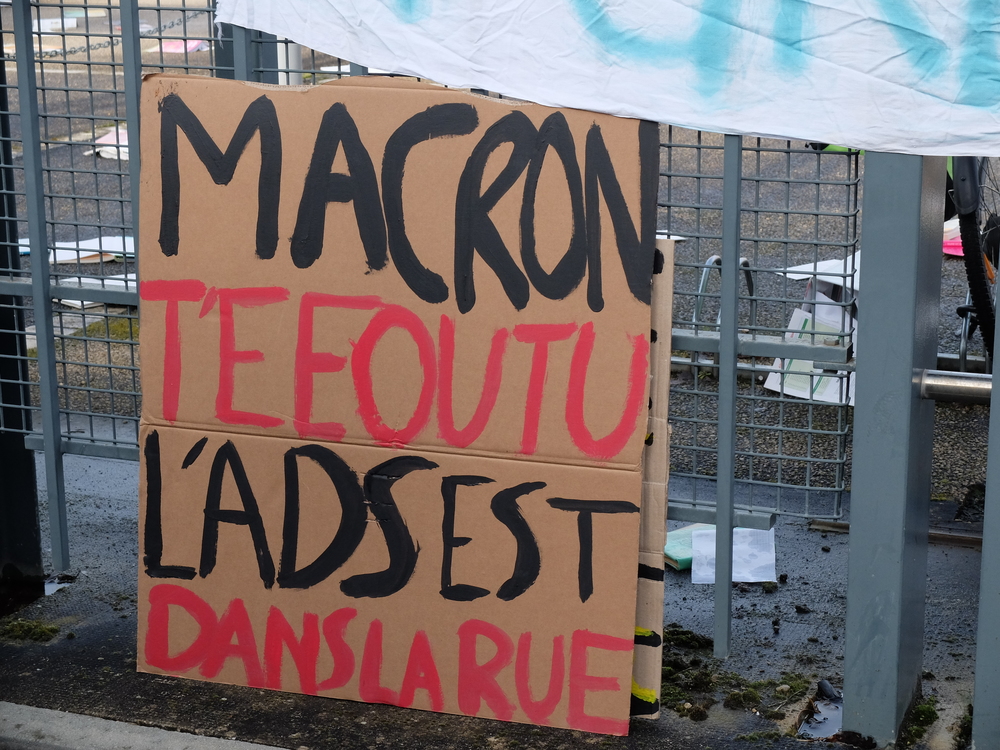 MACRON
T'E FOUTU
L'ADS EST
DANS LA RUE